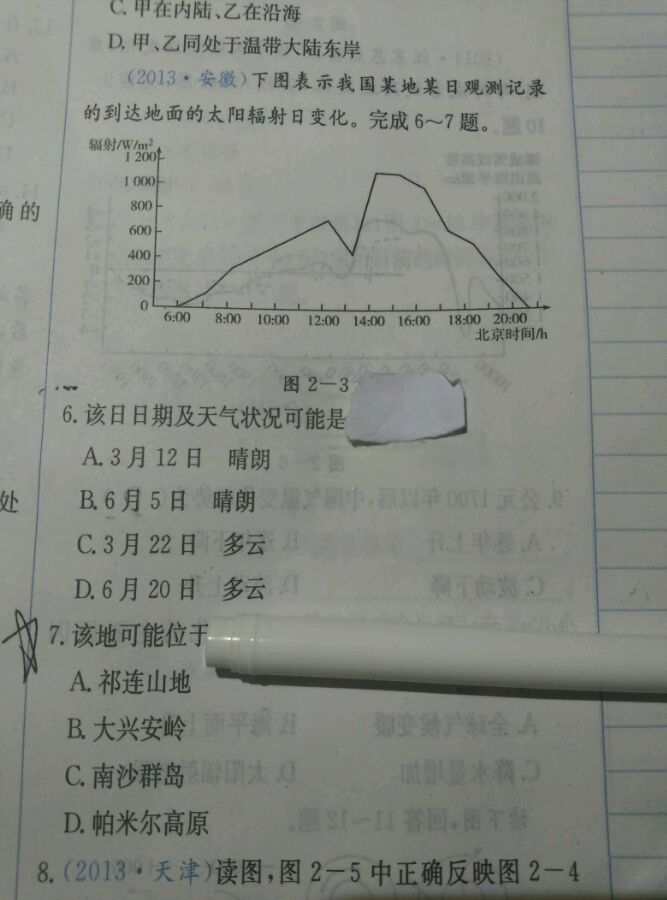 C.甲在内陆、乙在沿海
D.甲、乙同处于温带大陆东岸
(2013·安徽)下图表示我国某地某日观测记录
的到达地面的太阳辐射日变化。完成6～7题。
辐射/W/m²
1 200
1 000
800
600
400
200
0
6:00 8:00 10:00 12:00 14:00 16:00 18:00 20:00
北京时间/h
图2-3
确的
6.该日日期及天气状况可能是
A.3月12日 晴朗
B.6月5日 晴朗
C.3月22日 多云
D.6月20日 多云
处
7.该地可能位于
A.祁连山地
B.大兴安岭
C.南沙群岛
D.帕米尔高原
8.(2013·天津)读图,图2-5中正确反映图2-4